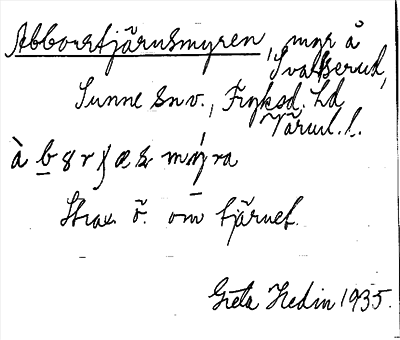 Abborrtjärnsmyren, myr å
Svalserud,
Sunne sn v., Fryksd. hd
Värml. l.
Strax ö. om tjärnet.
Greta Hedin 1935.